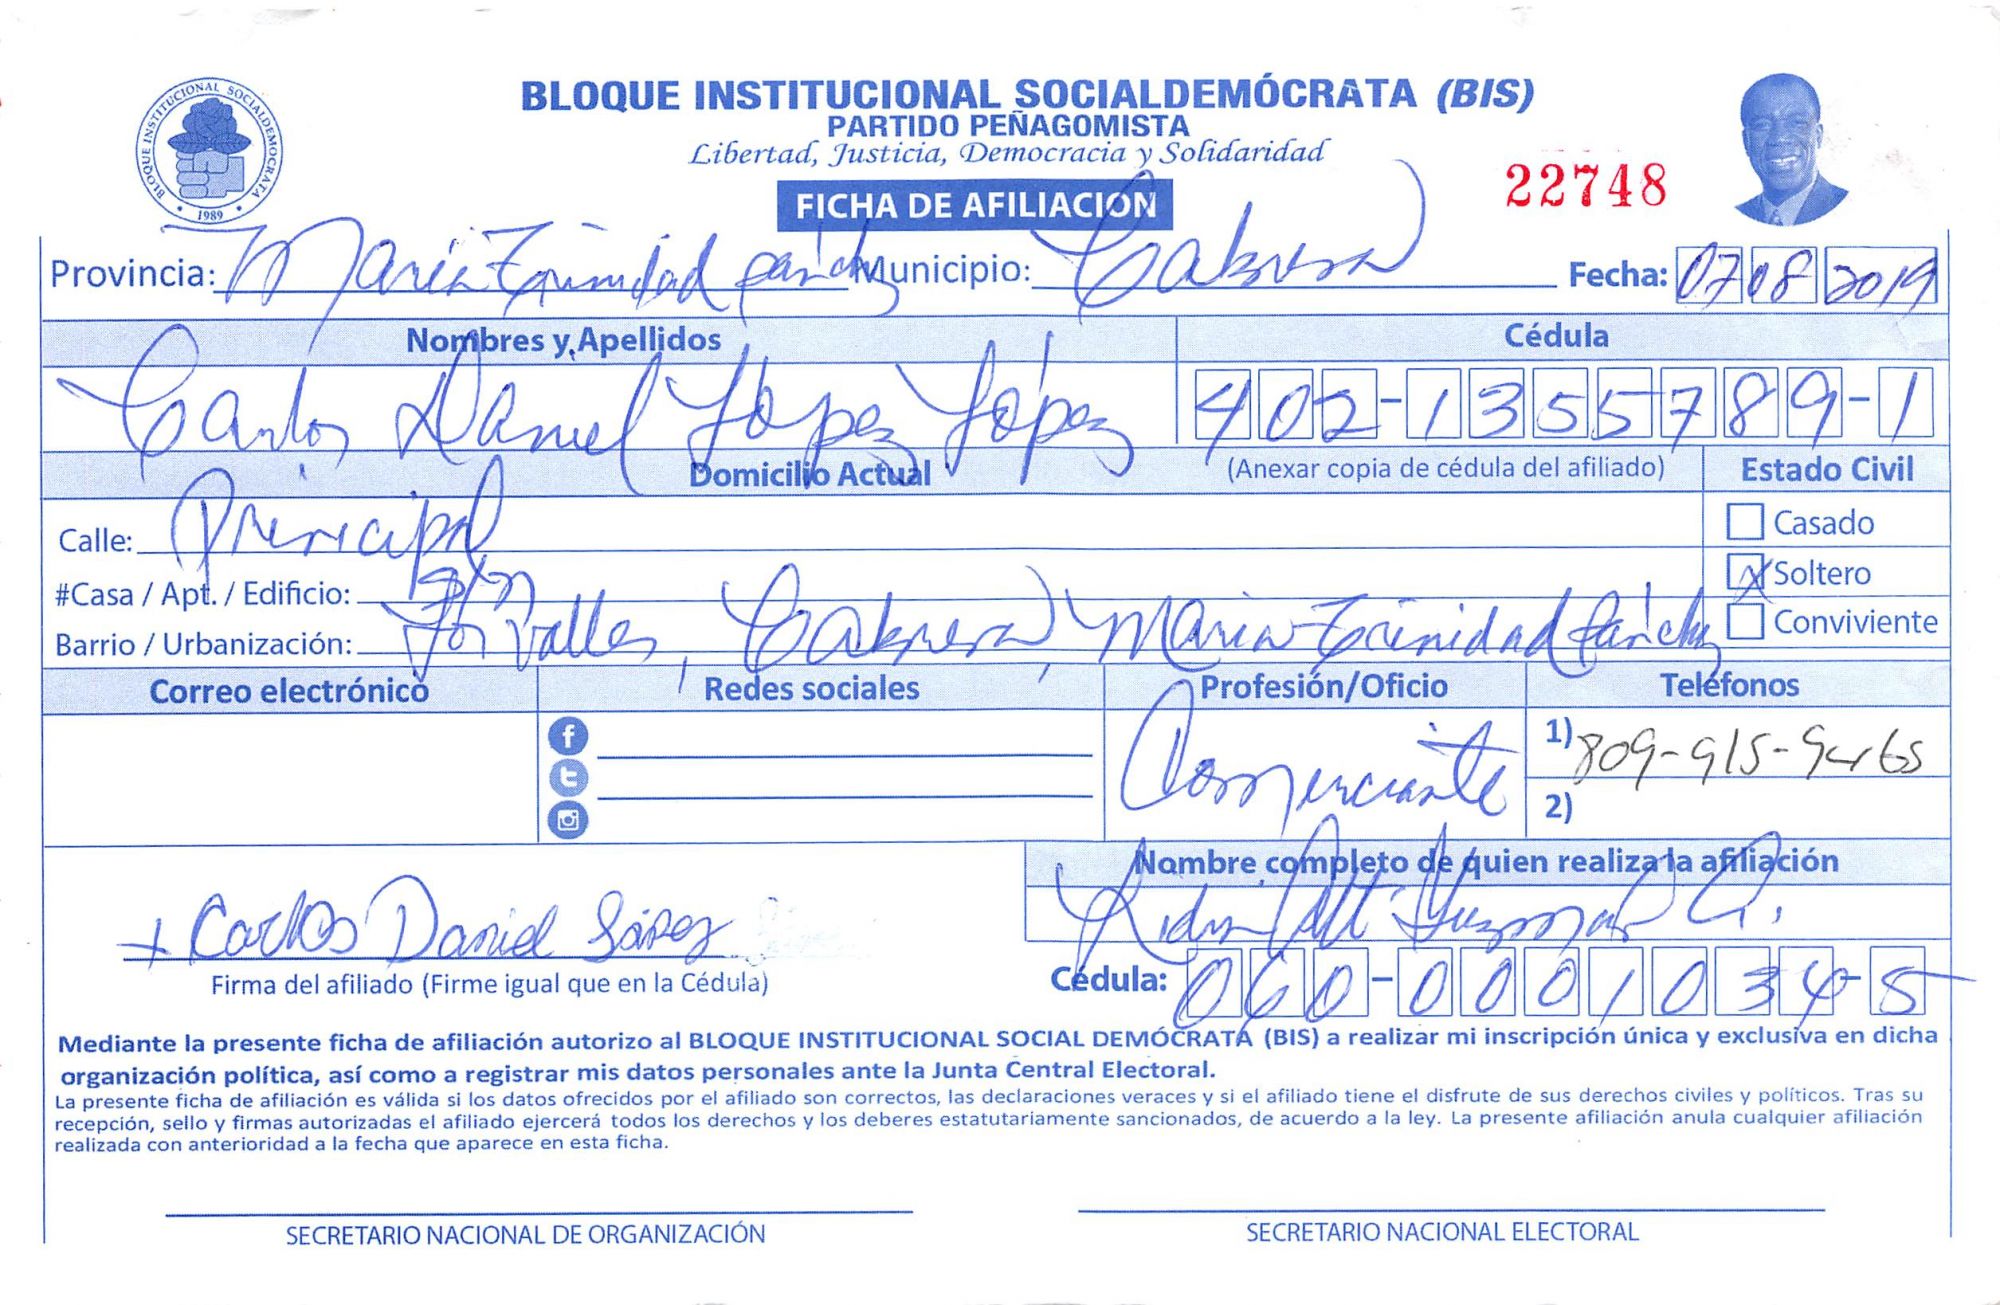 BLOQUE INSTITUCIONAL SOCIALDEMÓCRATA (BIS)
PARTIDO PEÑAGOMISTA
Libertad, Justicia, Democracia y Solidaridad
BLOQUE INSTITUCIONAL SOCIALDEMOCRATA
1989
22748
FICHA DE AFILIACION
Provincia: María Trinidad Sánchez Municipio: Cabrera Fecha: 07 08 2019
Nombres y Apellidos Cédula
Carlos Daniel López López 402-1355789-1
Domicilio Actual (Anexar copia de cédula del afiliado) Estado Civil
Calle: Principal
Casado
#Casa / Apt. / Edificio: S/n
X Soltero
Barrio / Urbanización: Los Valles, Cabrera, María Trinidad Sánchez
Conviviente
Correo electrónico Redes sociales Profesión/Oficio Teléfonos
Comerciante
1) 809-915-9465
2)
Nombre completo de quien realiza la afiliación
Guzmán
+ Carlos Daniel López
Firma del afiliado (Firme igual que en la Cédula)
Cédula: 060-0001034-5
Mediante la presente ficha de afiliación autorizo al BLOQUE INSTITUCIONAL SOCIAL DEMÓCRATA (BIS) a realizar mi inscripción única y exclusiva en dicha
organización política, así como a registrar mis datos personales ante la Junta Central Electoral.
La presente ficha de afiliación es válida si los datos ofrecidos por el afiliado son correctos, las declaraciones veraces y si el afiliado tiene el disfrute de sus derechos civiles y políticos. Tras su
recepción, sello y firmas autorizadas el afiliado ejercerá todos los derechos y los deberes estatutariamente sancionados, de acuerdo a la ley. La presente afiliación anula cualquier afiliación
realizada con anterioridad a la fecha que aparece en esta ficha.
SECRETARIO NACIONAL DE ORGANIZACIÓN
SECRETARIO NACIONAL ELECTORAL